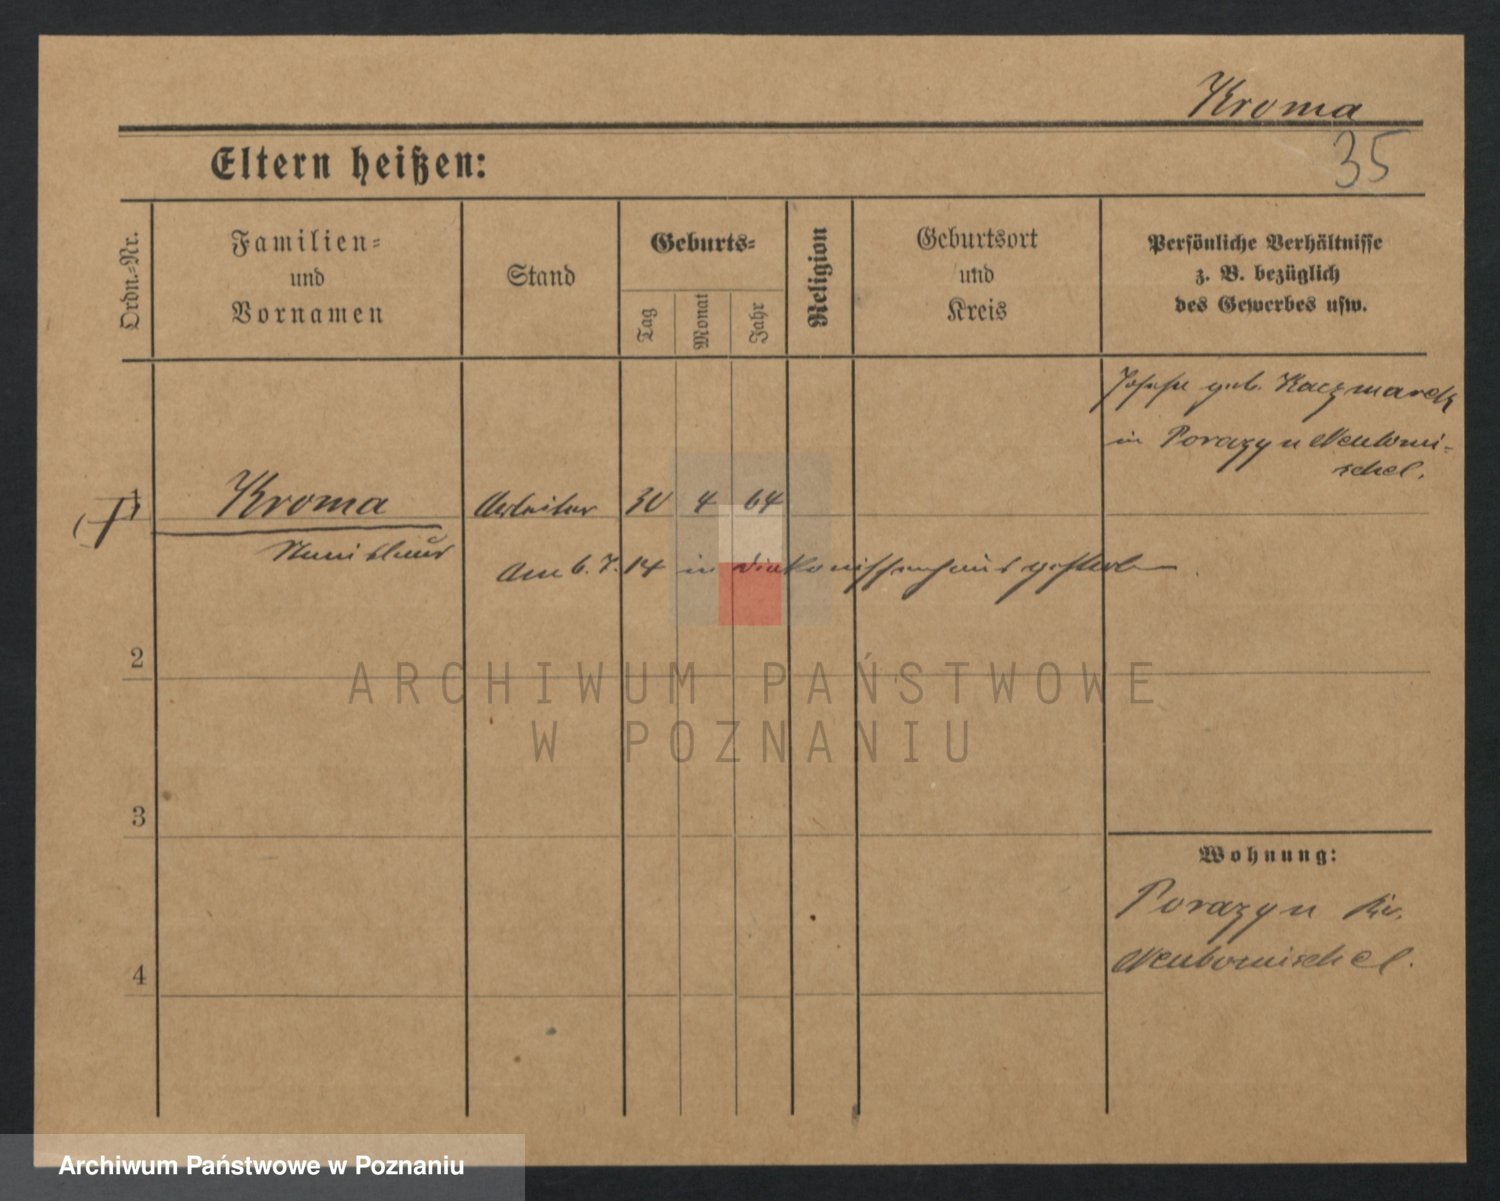 Kroma
35
Eltern heißen:
Ordn.-Nr.
Familien-
und
Vornamen
Stand
Geburts-
Tag
Monat
Jahr
Religion
Geburtsort
und
Kreis
Persönliche Verhältnisse
z. B. bezüglich
des Gewerbes usw.
geb. Kaczmarek
in Porazyn Neutomi-
schel.
1 Kroma Arbeiter 30 4 64
Stanislaus
Am 6.7.14 in Diakonissenhaus gestorben
2
ARCHIWUM PAŃSTWOWE
W POZNANIU
3
Wohnung:
Porazyn Kr.
Neutomischel.
4
Archiwum Państwowe w Poznaniu